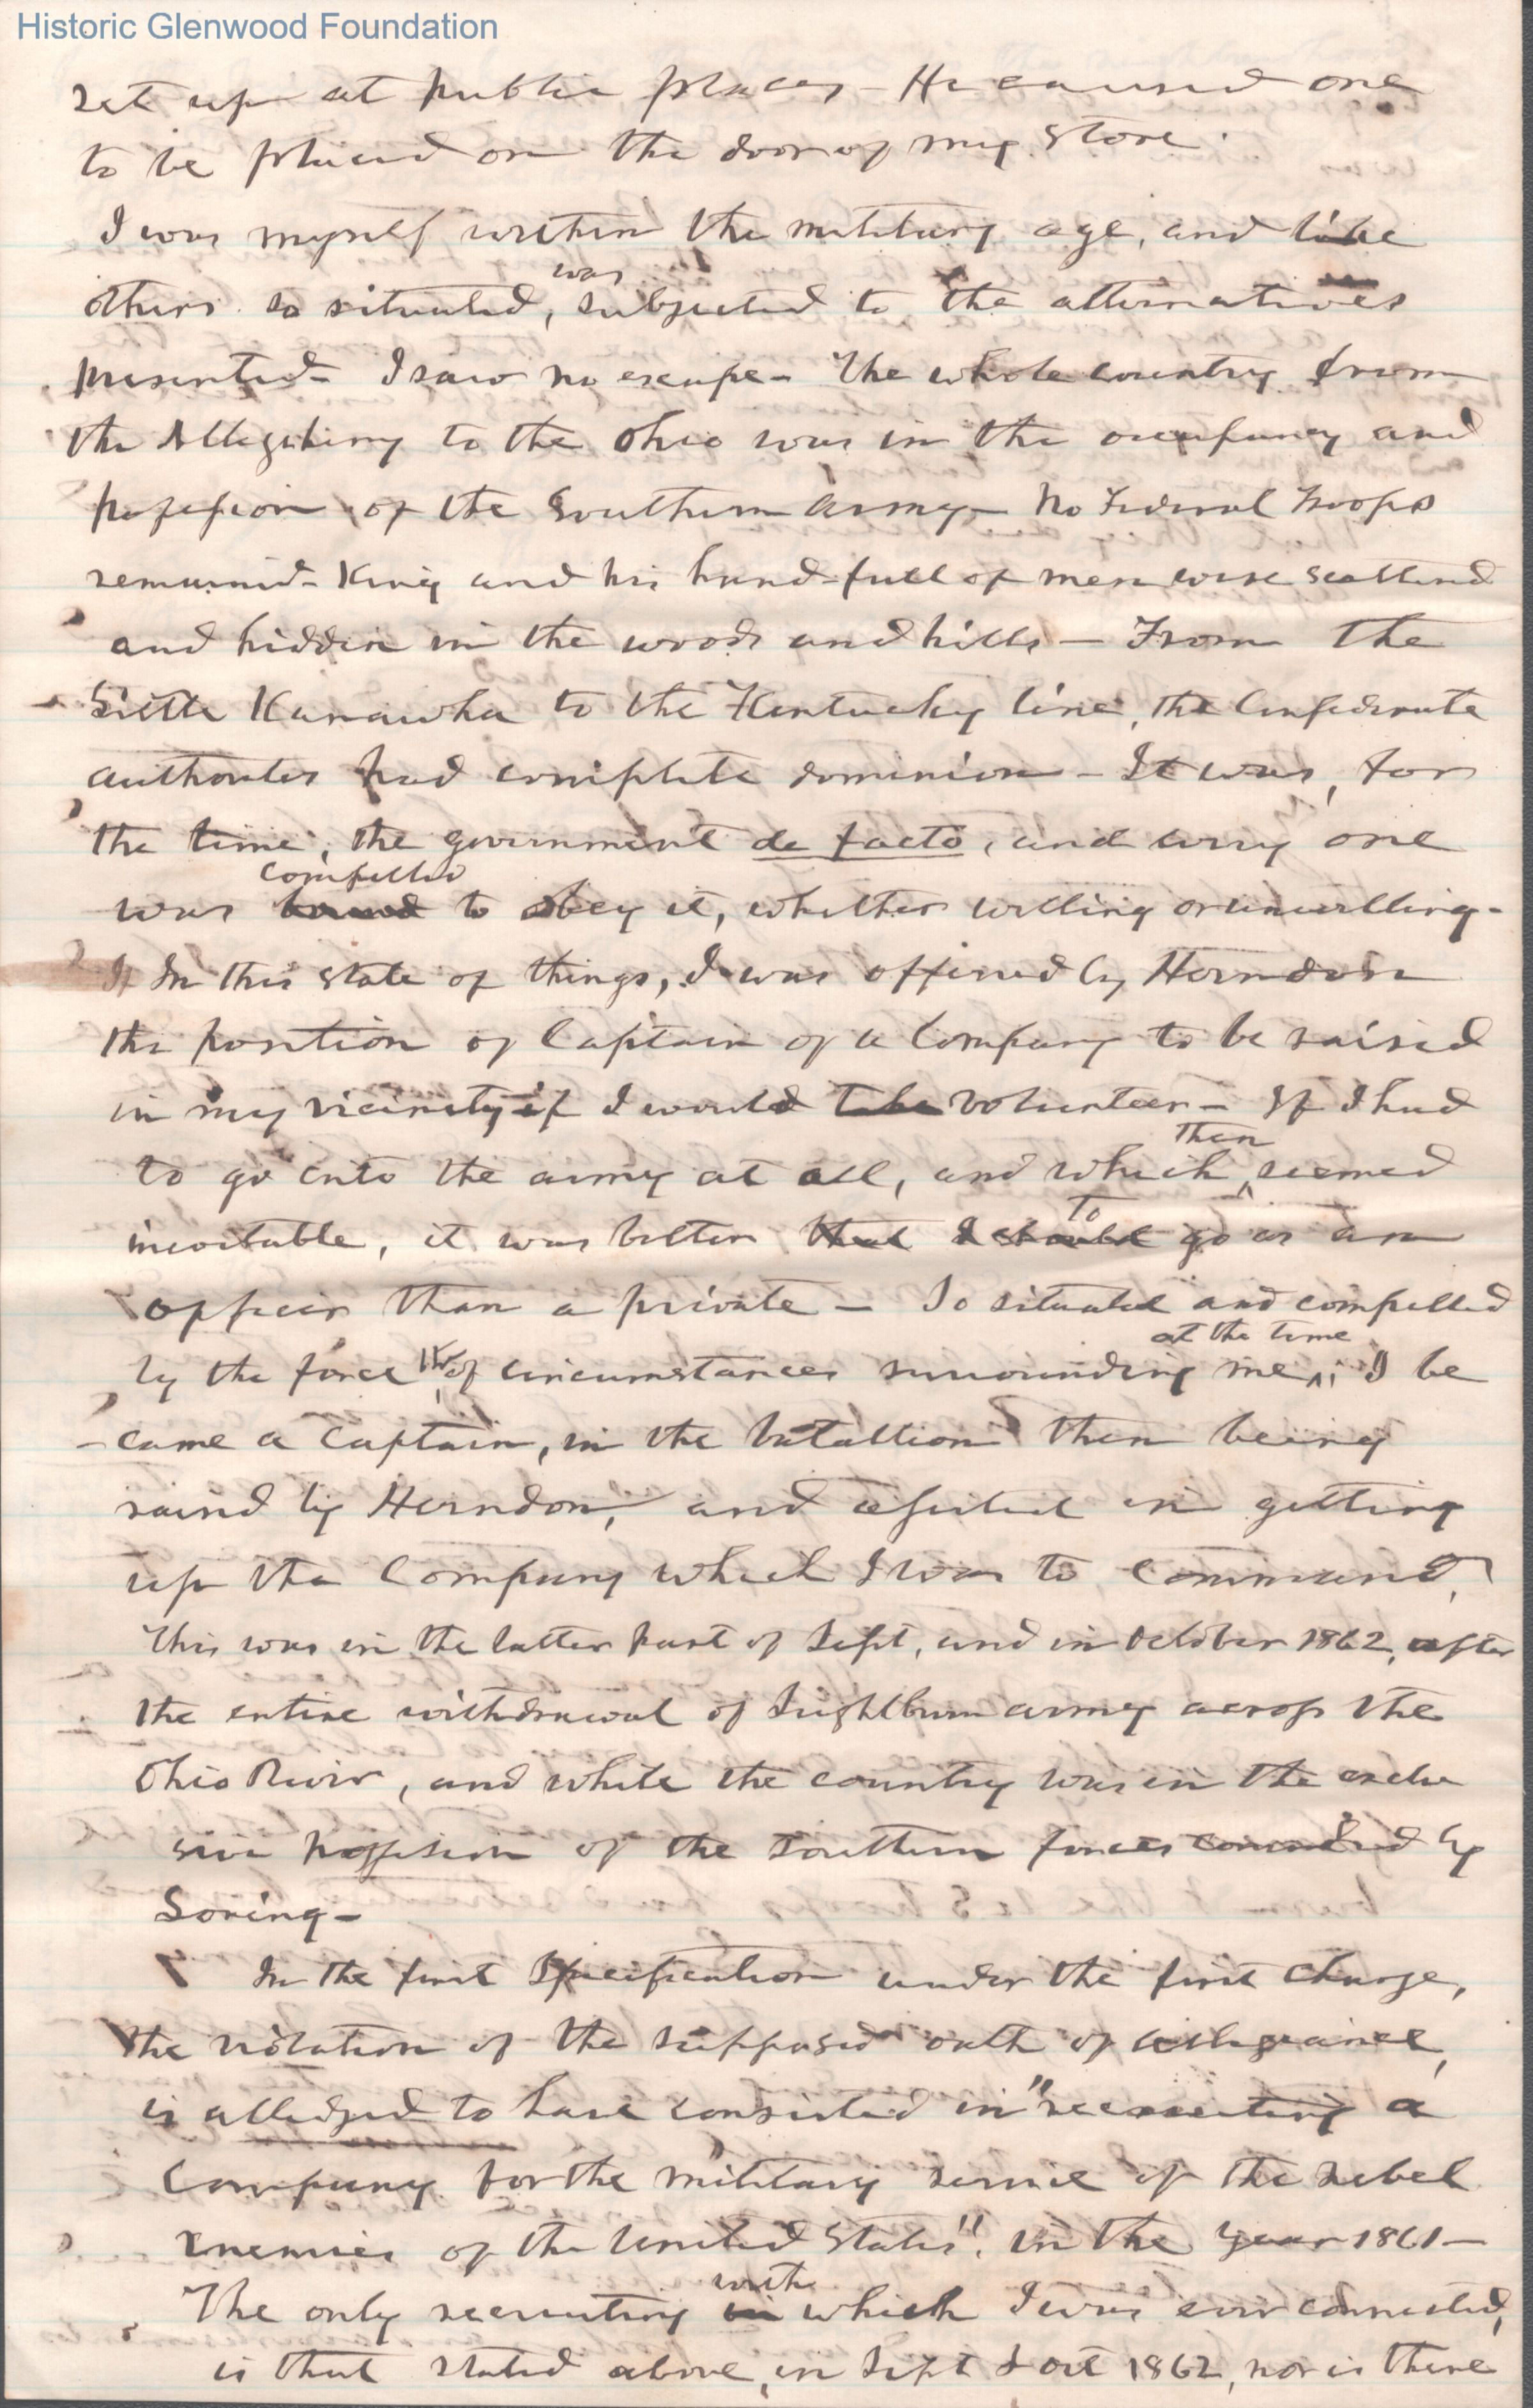 Historic Glenwood Foundation
set up at public places - He caused one
to be placed on the door of my store.
I was myself within the military age, and like
others so situated, was subjected to the alternatives
presented - I saw no escape - The whole country from
the Allegheny to the Ohio was in the occupancy and
possession of the Southern army - No Federal troops
remained - King and his hand-full of men were scattered
and hidden in the woods and hills - From the
Little Kanawha to the Kentucky line, the Confederate
authorites had complete dominion - It was, for
the time, the government de facto, and every one
was bound compelled to obey it, whether willing or unwilling -
In this state of things, I was offered by Herndon
the position of Captain of a Company to be raised
in my vicinity if I would take volunteer - If I had
to go into the army at all, and which then seemed
inevitable, it was better that I should to go as an
officer than a private - So situated and compelled
by the force of circumstances surrounding me at the time, I be
-came a Captain, in the batallion then being
raised by Herndon, and assisted in getting
up the Company which I was to command.
This was in the latter part of Sept, and in October 1862, after
the entire withdrawal of Lightburn army across the
Ohio River, and while the country was in the exclu
sive possession of the Southern forces by
Loring -
In the first Specification under the first charge,
the violation of the supposed oath of allegiance,
is alledged to have consisted in "recruiting a
Company for the military service of the rebel
enemies of the United States", in the year 1861 -
The only recruiting in with which I was ever connected,
is that stated above, in Sept & Oct 1862, nor is there